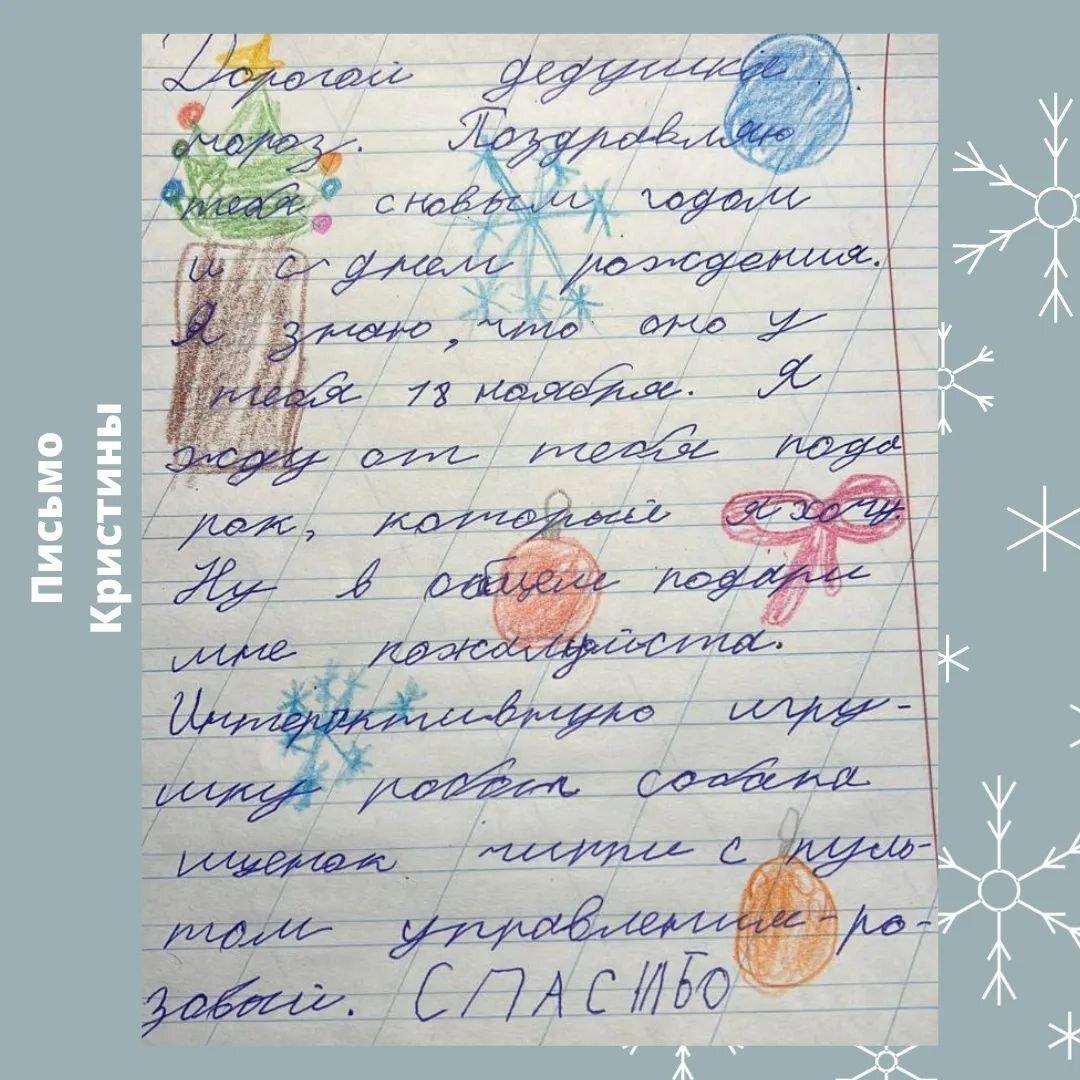 Письмо
Кристины
Дорогой дедушка
мороз. Поздравляю
тебя с новым годом
и с днем рождения.
Я знаю, что оно у
тебя 18 ноября. Я
жду от тебя пода
рок, который я хочу.
Ну в общем подари
мне пожалуйста.
Интерактивную игру-
шку робот собака
щенок чиппи с пуль-
том управлением-ро-
зовый. СПАСИБО